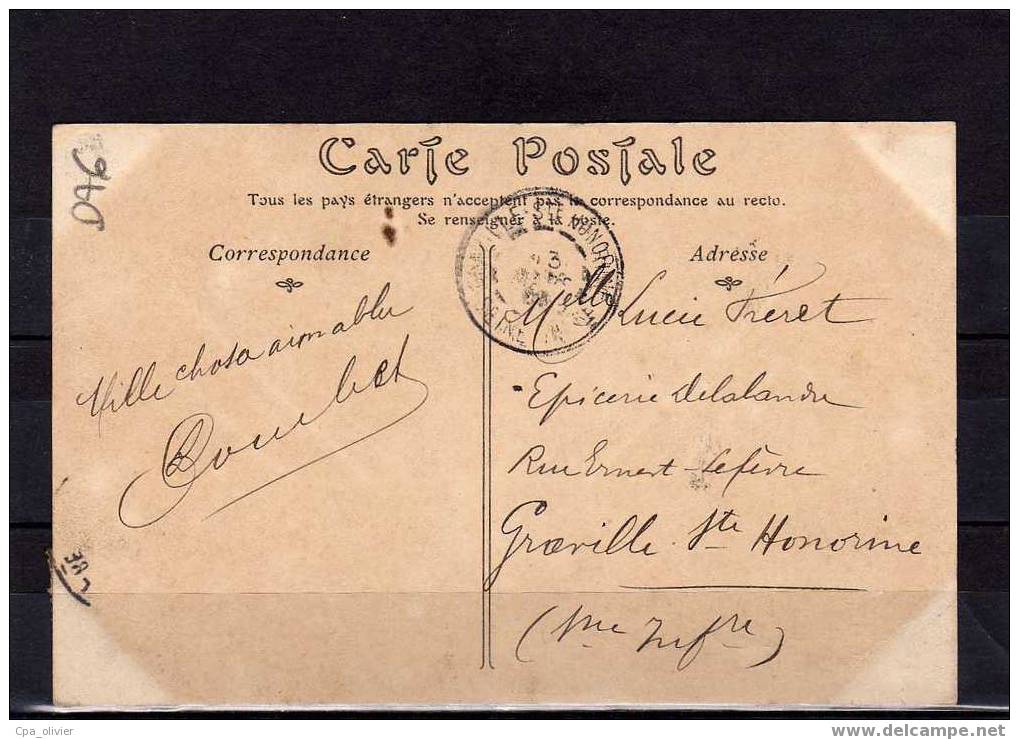 940
Carte Postale
Tous les pays étrangers n'acceptent pas la correspondance au recto.
Se renseigner à la poste.
Correspondance
Adresse
Mille choses aimables
Melle Lucie Fréret
Epicerie Delalande
Rue Ernest Lefèvre
Graville Ste Honorine
(Sne Infre)
GRAVILLE-STE HONORINE
SEINE INFRE
Cpa_olivier
delcampe.net